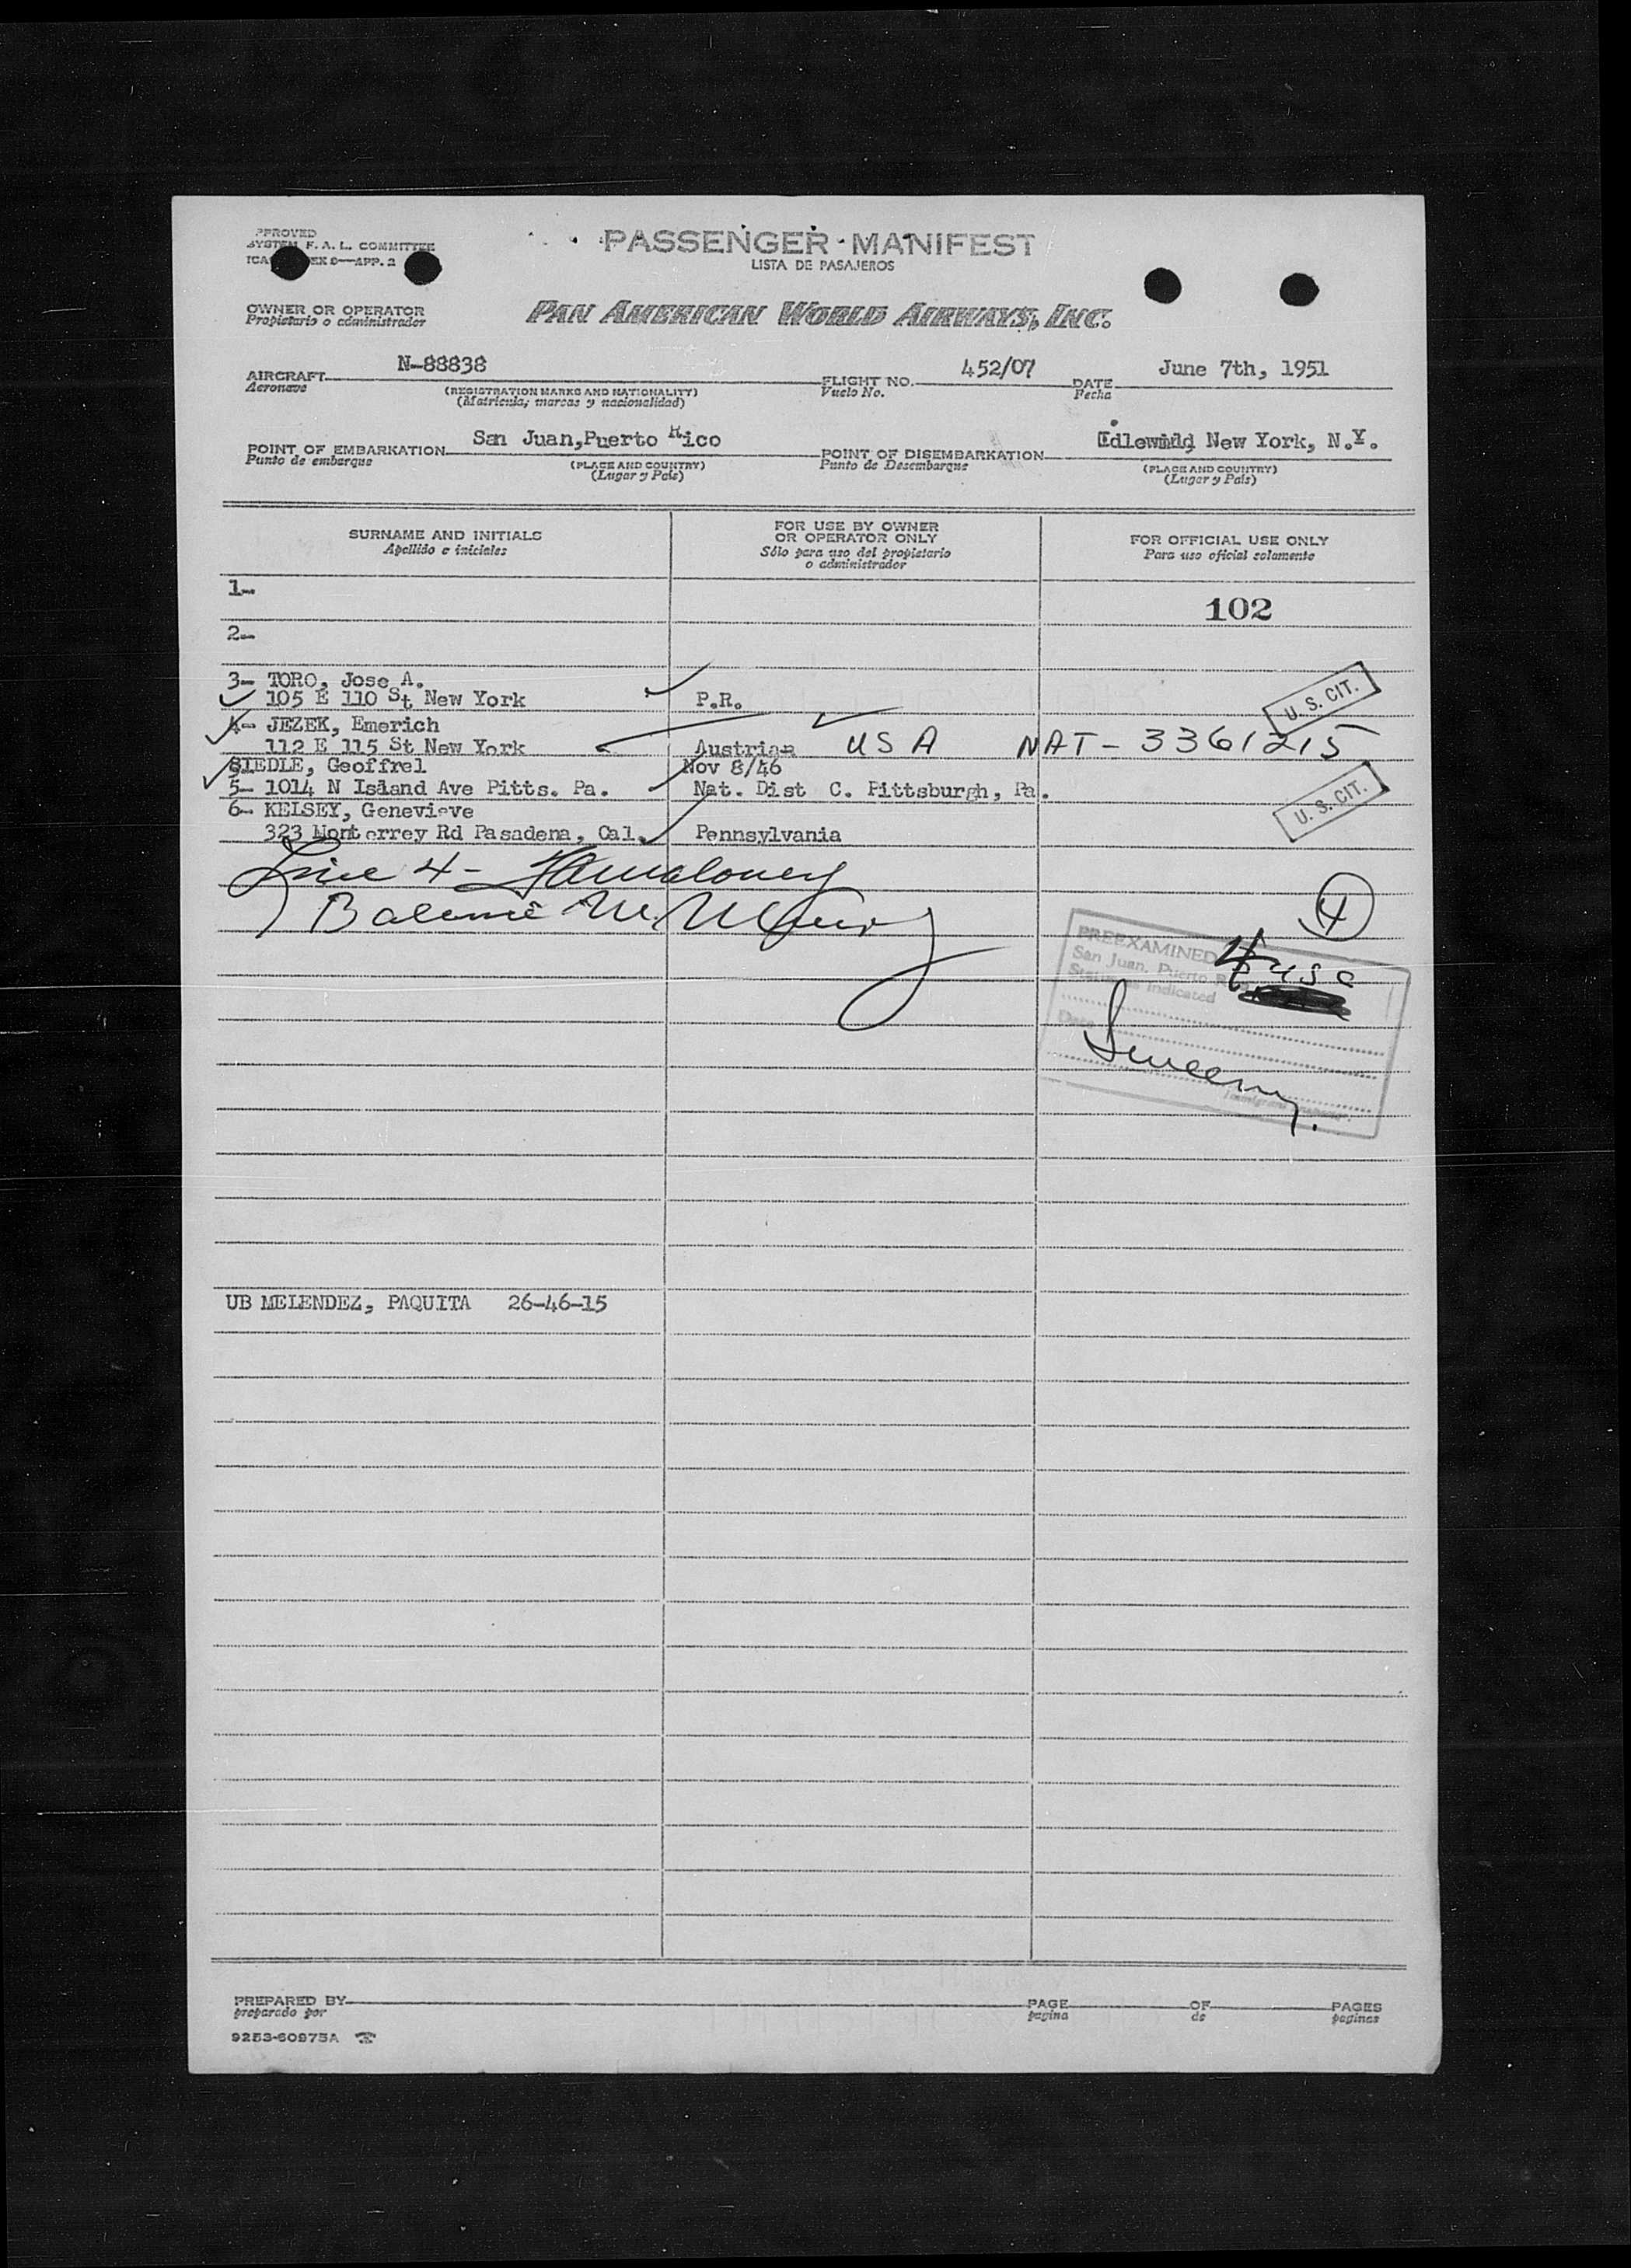 PPROVED
SYSTEM F. A. L. COMMITTEE
ICA EX 9—APP. 2
PASSENGER MANIFEST
LISTA DE PASAJEROS
OWNER OR OPERATOR
Propietario o administrador
PAN AMERICAN WORLD AIRWAYS, INC.
AIRCRAFT N-88838 FLIGHT NO. 452/07 DATE June 7th, 1951
Aeronave (REGISTRATION MARKS AND NATIONALITY) Vuelo No. Fecha
(Matricula, marcas y nacionalidad)
POINT OF EMBARKATION San Juan,Puerto Rico POINT OF DISEMBARKATION Idlewild, New York, N.Y.
Punto de embarque (PLACE AND COUNTRY) Punto de Desembarque (PLACE AND COUNTRY)
(Lugar y País) (Lugar y País)
SURNAME AND INITIALS FOR USE BY OWNER OR OPERATOR ONLY FOR OFFICIAL USE ONLY
Apellido e iniciales Sólo para uso del propietario o administrador Para uso oficial solamente
1-
102
2-
3- TORO, Jose A.
105 E 110 St New York P.R. U. S. CIT.
4- JEZEK, Emerich
112 E 115 St New York Austrian USA NAT - 3361215
SIEDLE, Geoffrel Nov 8/46
5- 1014 N Island Ave Pitts. Pa. Nat. Dist C. Pittsburgh, Pa. U. S. CIT.
6- KELSEY, Genevieve
323 Monterrey Rd Pasadena, Cal. Pennsylvania
Line 4 -
4
Balance
PREEXAMINED
San Juan, Puerto
Status as indicated
4 usc
Date
Sweeny.
UB MELENDEZ, PAQUITA 26-46-15
PREPARED BY PAGE OF PAGES
preparado por pagina de paginas
9253-60975A